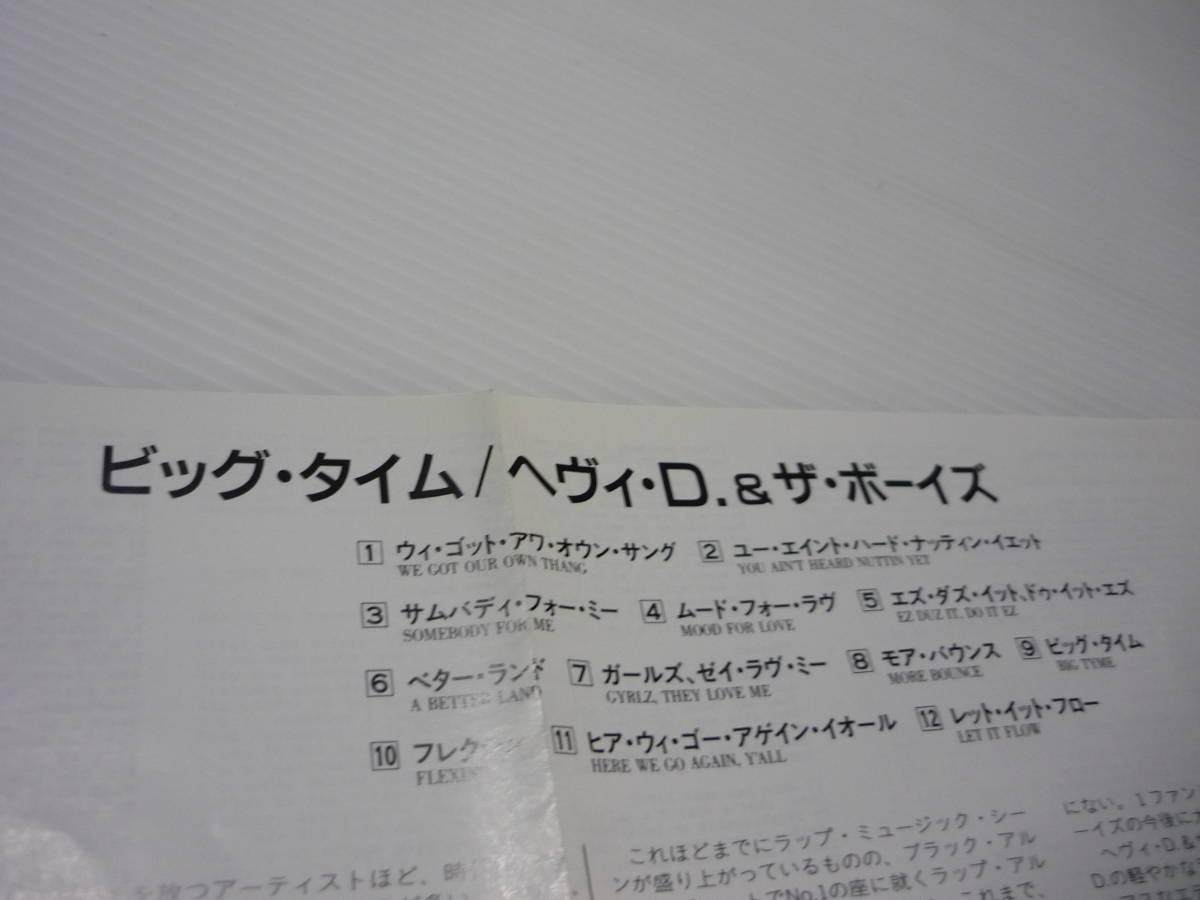 ビッグ・タイム/ヘヴィ・D.&ザ・ボーイズ
1 ウィ・ゴット・アワ・オウン・サング 2 ユー・エイント・ハード・ナッティン・イエット
WE GOT OUR OWN THANG YOU AIN'T HEARD NUTTIN YET
3 サムバディ・フォー・ミー 4 ムード・フォー・ラヴ 5 エズ・ダズ・イット、ドゥ・イット・エズ
SOMEBODY FOR ME MOOD FOR LOVE EZ DUZ IT, DO IT EZ
6 ベター・ランド 7 ガールズ、ゼイ・ラヴ・ミー 8 モア・バウンス 9 ビッグ・タイム
A BETTER LAND GYRLZ, THEY LOVE ME MORE BOUNCE BIG TYME
10 フレク 11 ヒア・ウィ・ゴー・アゲイン・イオール 12 レット・イット・フロー
FLEX HERE WE GO AGAIN, Y'ALL LET IT FLOW
を放つアーティストほど、時
これほどまでにラップ・ミュージック・シー
ンが盛り上がっているものの、ブラック・アル
トでNo.1の座に就くラップ・アル
これまで、
にない。1ファン
ーイズの今後に
ヘヴィ・D.&
D.の軽やかな